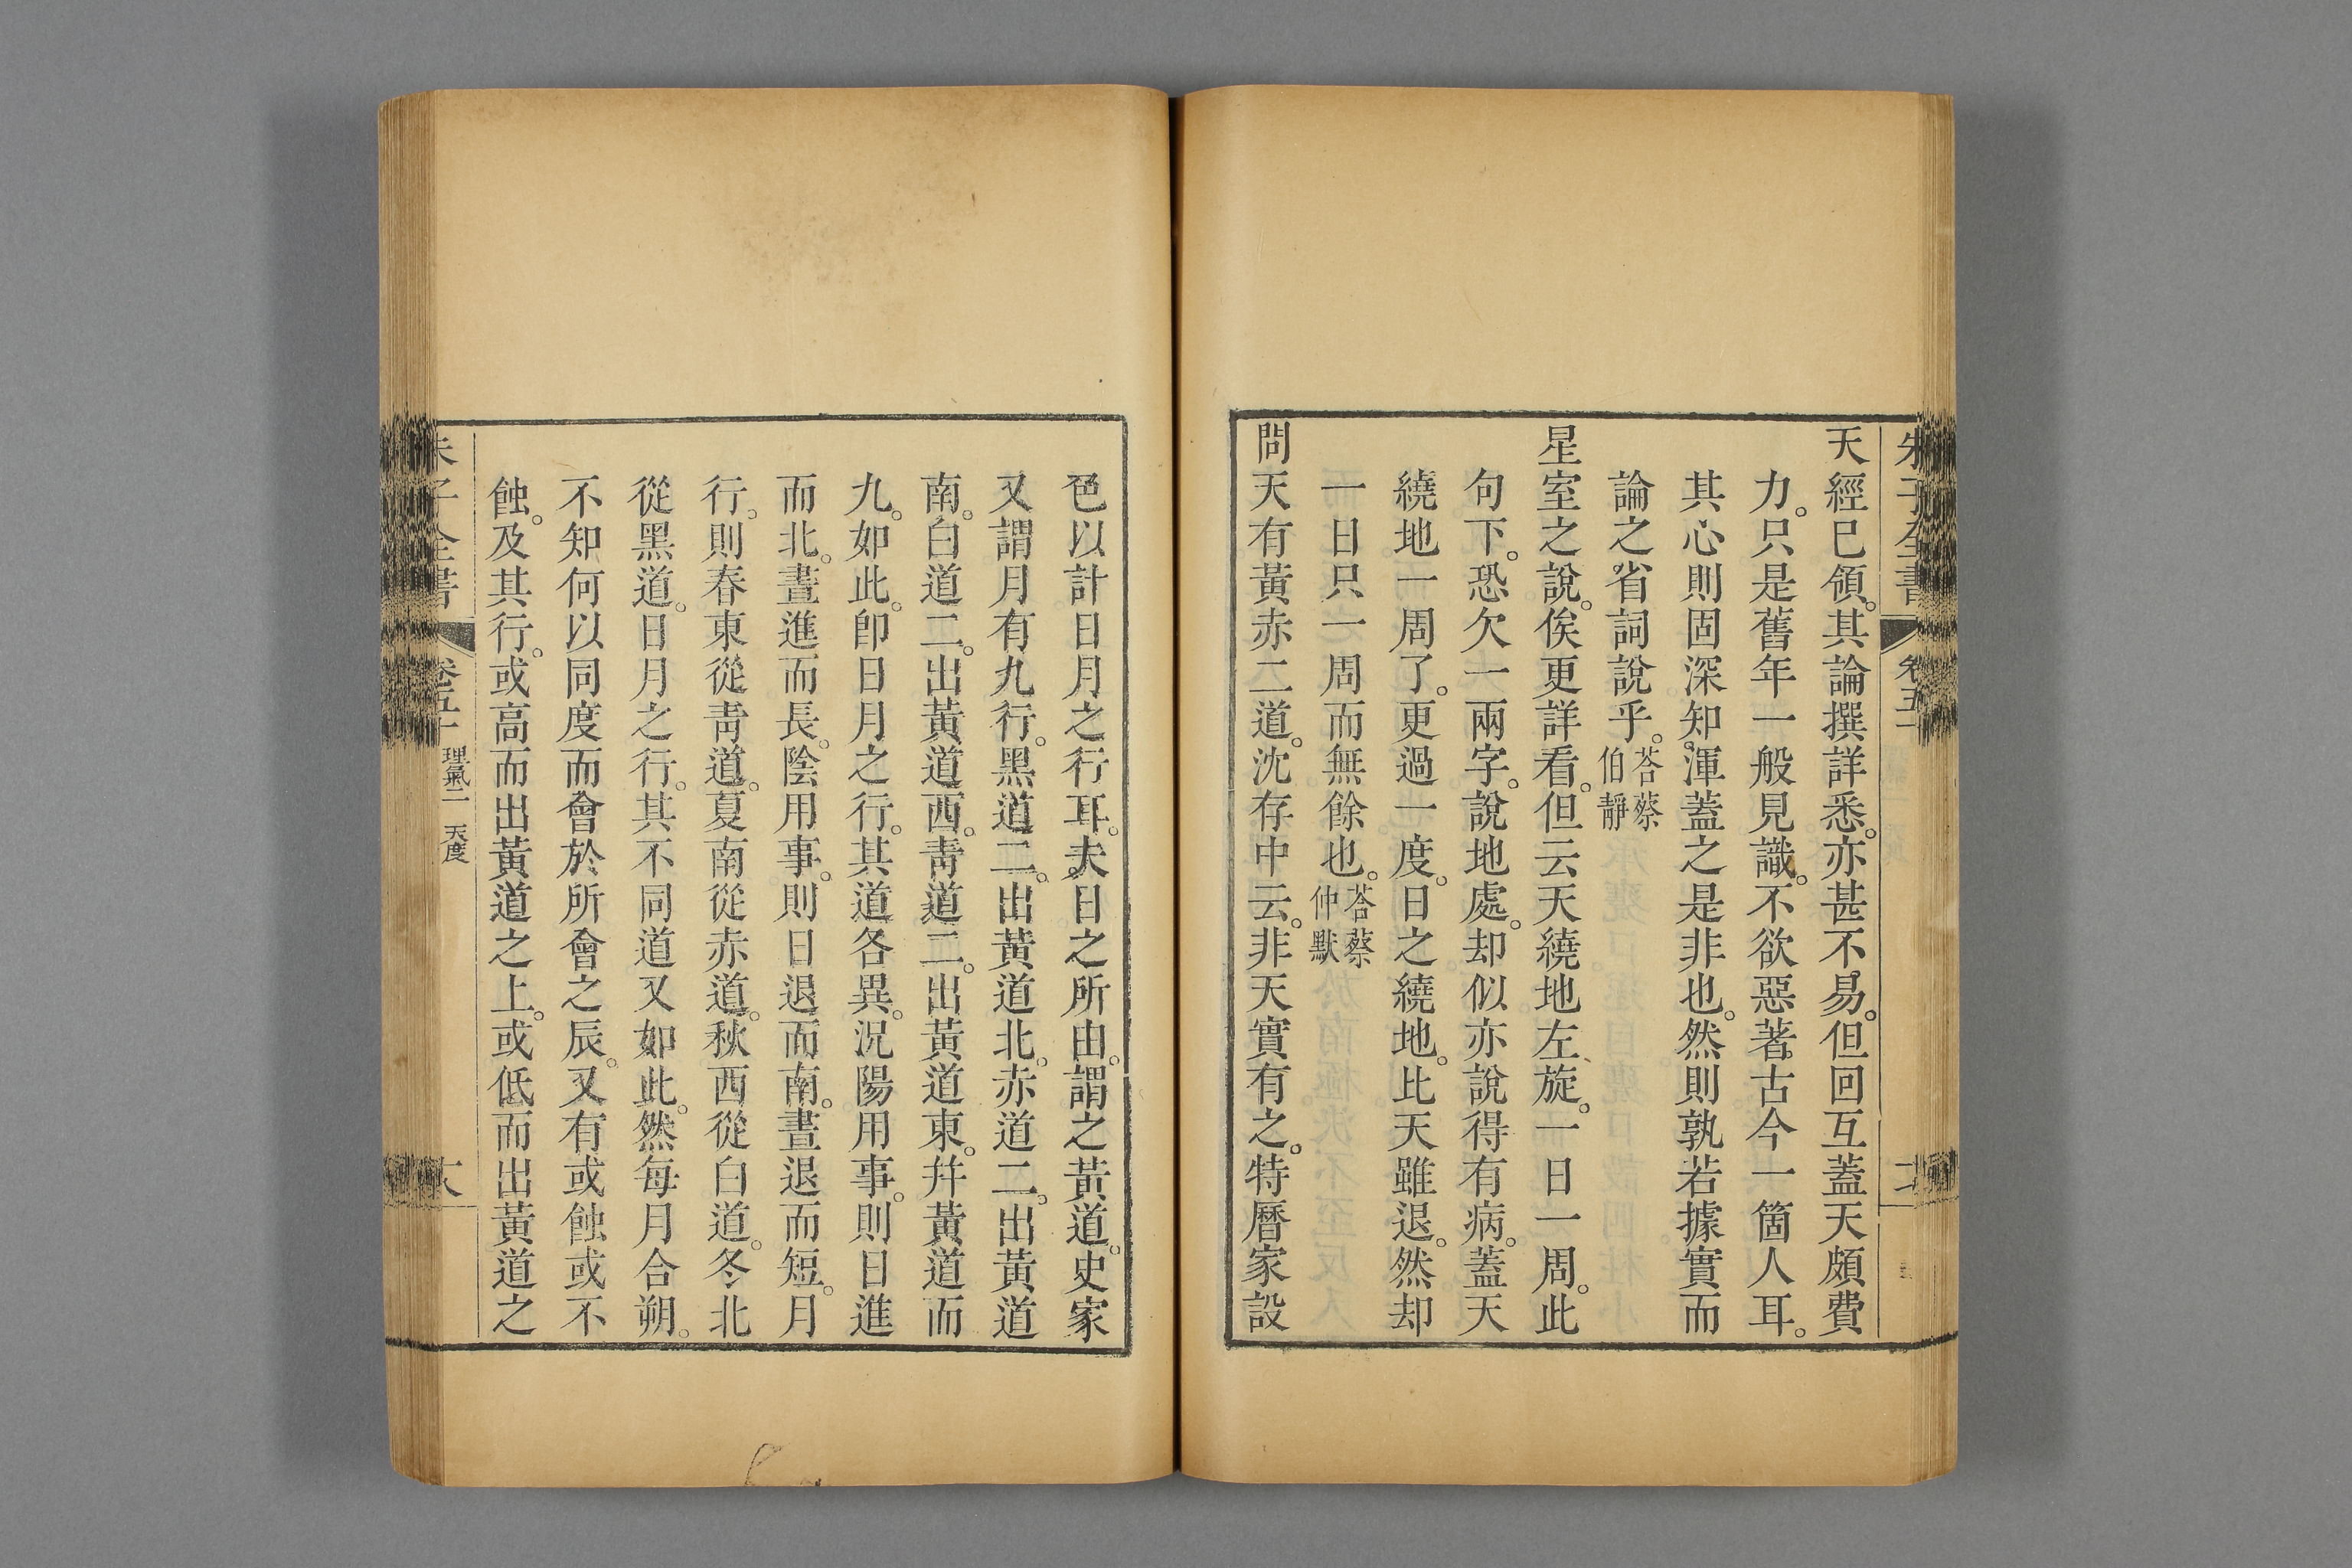 朱子全書 卷五十
天經已領。其論撰詳悉。亦甚不易。但回互蓋天頗費
力。只是舊年一般見識。不欲惡著古今一箇人耳。
其心則固深知渾蓋之是非也。然則孰若據實而
論之省詞說乎。荅蔡伯靜
星室之說。俟更詳看。但云天繞地左旋。一日一周。此
句下。恐欠一兩字。說地處。却似亦說得有病。蓋天
繞地一周了。更過一度。日之繞地。比天雖退。然却
一日只一周而無餘也。荅蔡仲默
問天有黃赤二道。沈存中云。非天實有之。特曆家設
色以計日月之行耳。夫日之所由。謂之黃道。史家
又謂月有九行。黑道二。出黃道北。赤道二。出黃道
南。白道二。出黃道西。靑道二。出黃道東。幷黃道而
九。如此。卽日月之行。其道各異。況陽用事。則日進
而北。晝進而長。陰用事。則日退而南。晝退而短。月
行。則春東從靑道。夏南從赤道。秋西從白道。冬北
從黑道。日月之行。其不同道又如此。然每月合朔。
不知何以同度而會於所會之辰。又有或蝕或不
蝕。及其行。或高而出黃道之上。或低而出黃道之
朱子全書 卷五十 理氣二 天度